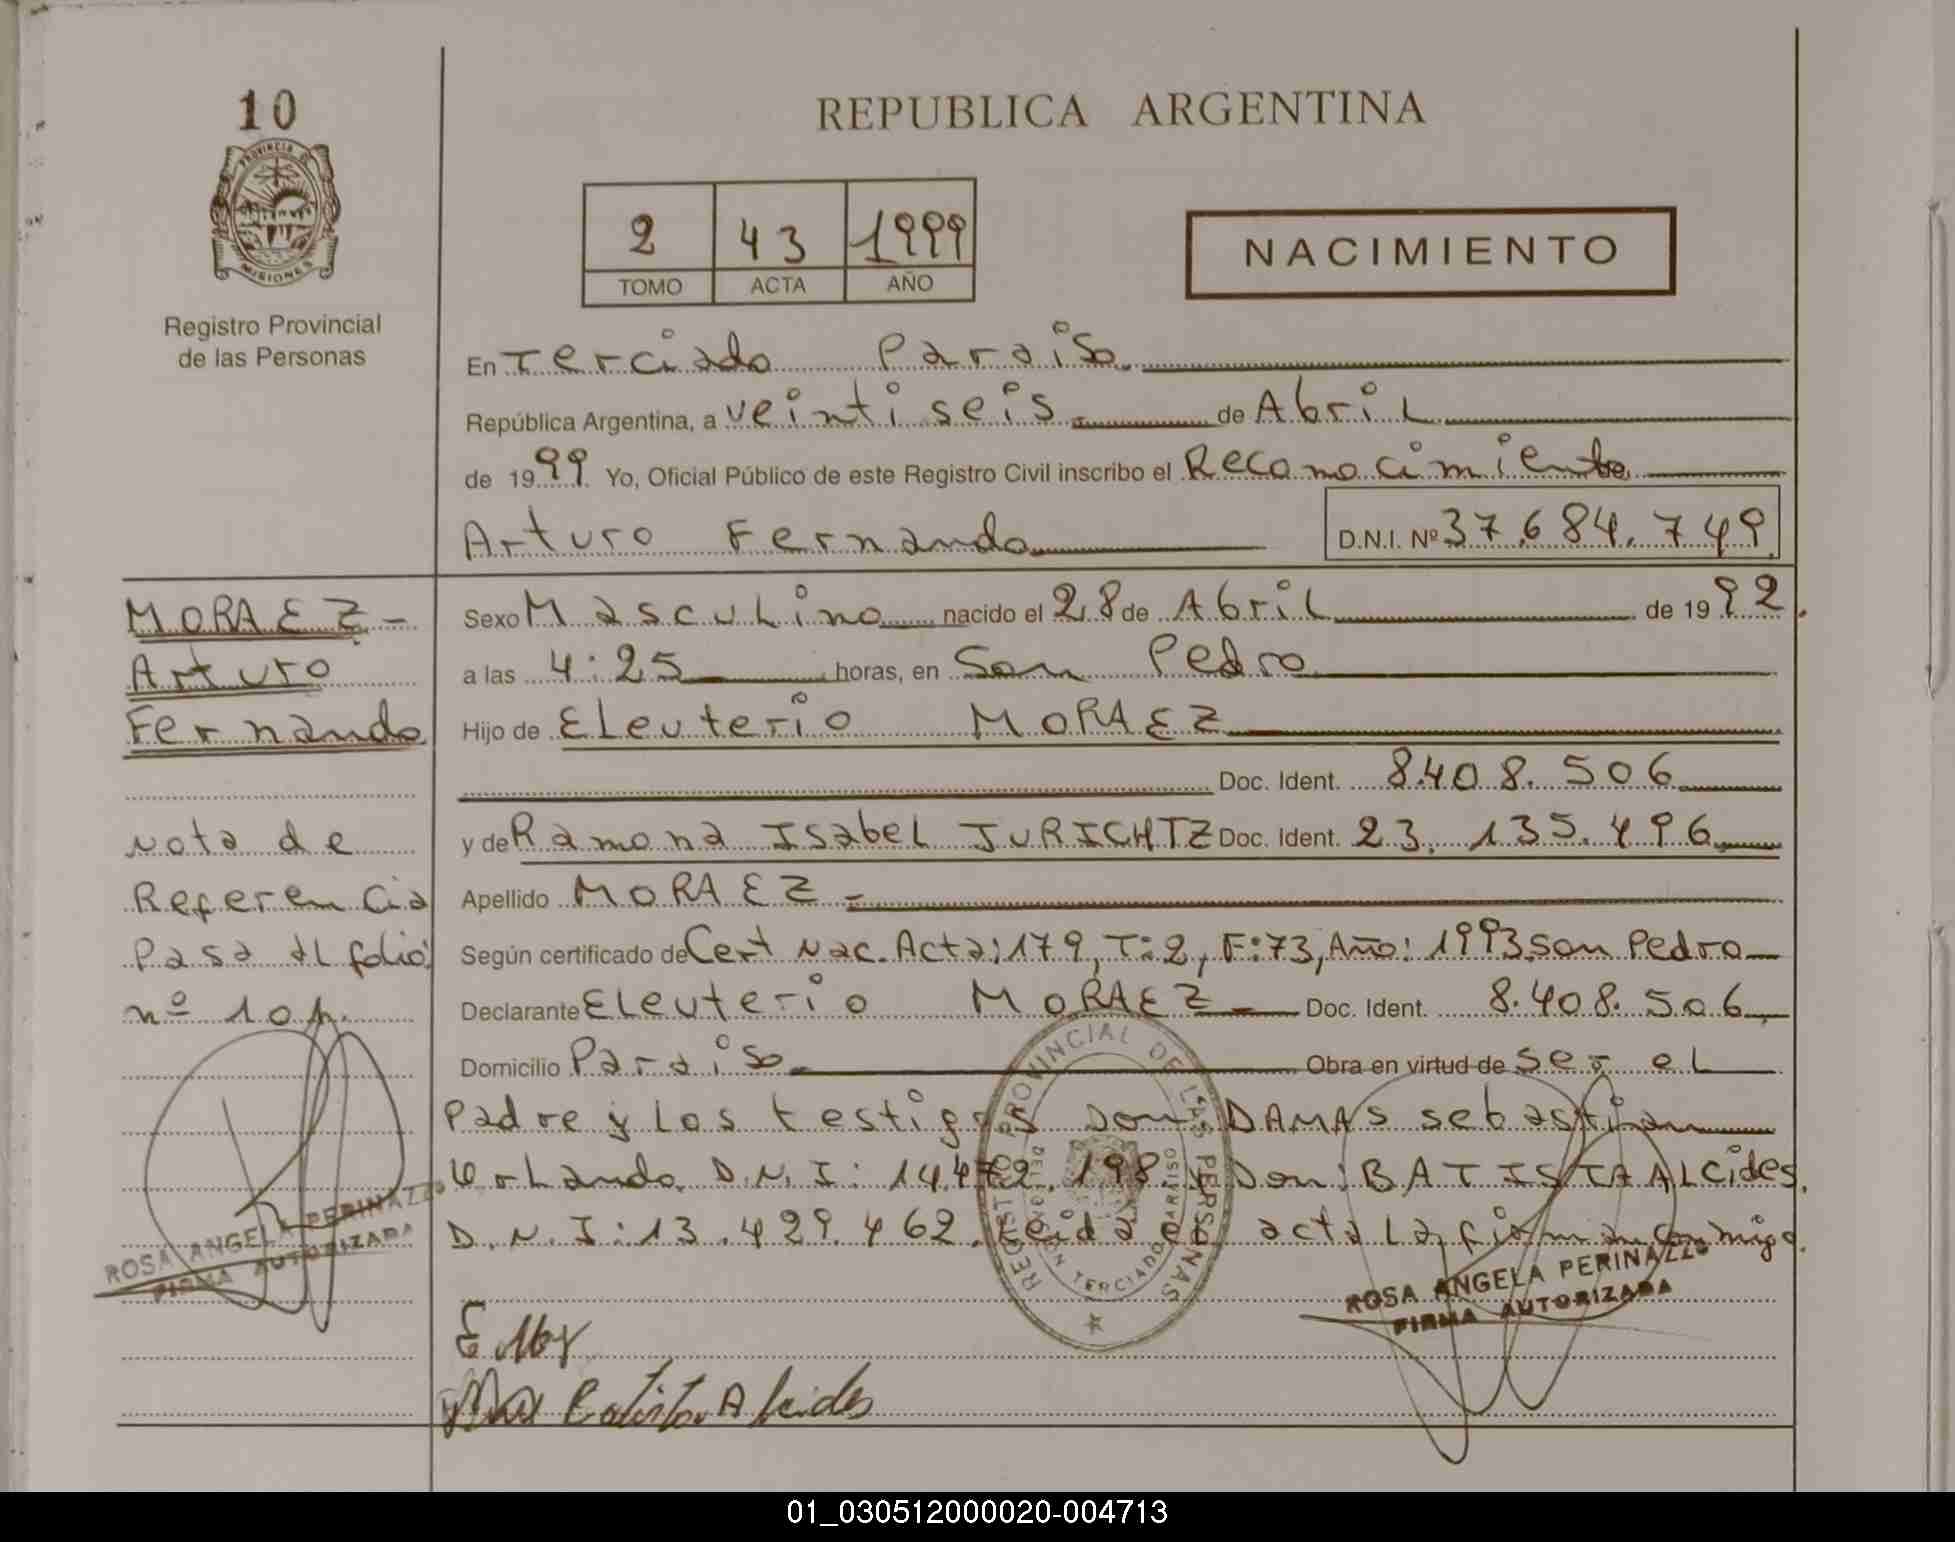 10
PROVINCIA DE
MISIONES
Registro Provincial
de las Personas
REPUBLICA ARGENTINA
2 43 1999
TOMO ACTA AÑO
NACIMIENTO
En Terciado Paraiso
República Argentina, a veintiseis de Abril
de 1999 Yo, Oficial Público de este Registro Civil inscribo el Reconocimiento
Arturo Fernando D.N.I. Nº 37.684.749
MORAEZ -
Arturo
Fernando
Nota de
Referencia
Pasa al folio:
nº 101.
Sexo Masculino nacido el 28 de Abril de 1992.
a las 4:25 horas, en San Pedro
Hijo de Eleuterio MORAEZ
Doc. Ident. 8.408.506
y de Ramona Isabel JURICHTZ Doc. Ident. 23.135.496
Apellido MORAEZ -
Según certificado de Cert Nac. Acta: 179, T: 2, F: 73, Año: 1993 San Pedro
Declarante Eleuterio MORAEZ - Doc. Ident. 8.408.506
Domicilio Paraiso. Obra en virtud de ser el
Padre y Los testigos Don: DAMAS sebastian
OrLando D.N.I: 14.472.198. y Don: BATISTA ALcides.
D.N.I: 13.429.462. Leida el acta La firman conmigo.
REGISTRO PROVINCIAL DE LAS PERSONAS
TERCIADO PARAISO
ROSA ANGELA PERINAZZO
FIRMA AUTORIZADA
ROSA ANGELA PERINAZZO
FIRMA AUTORIZADA
Batista Alcides
01_030512000020-004713